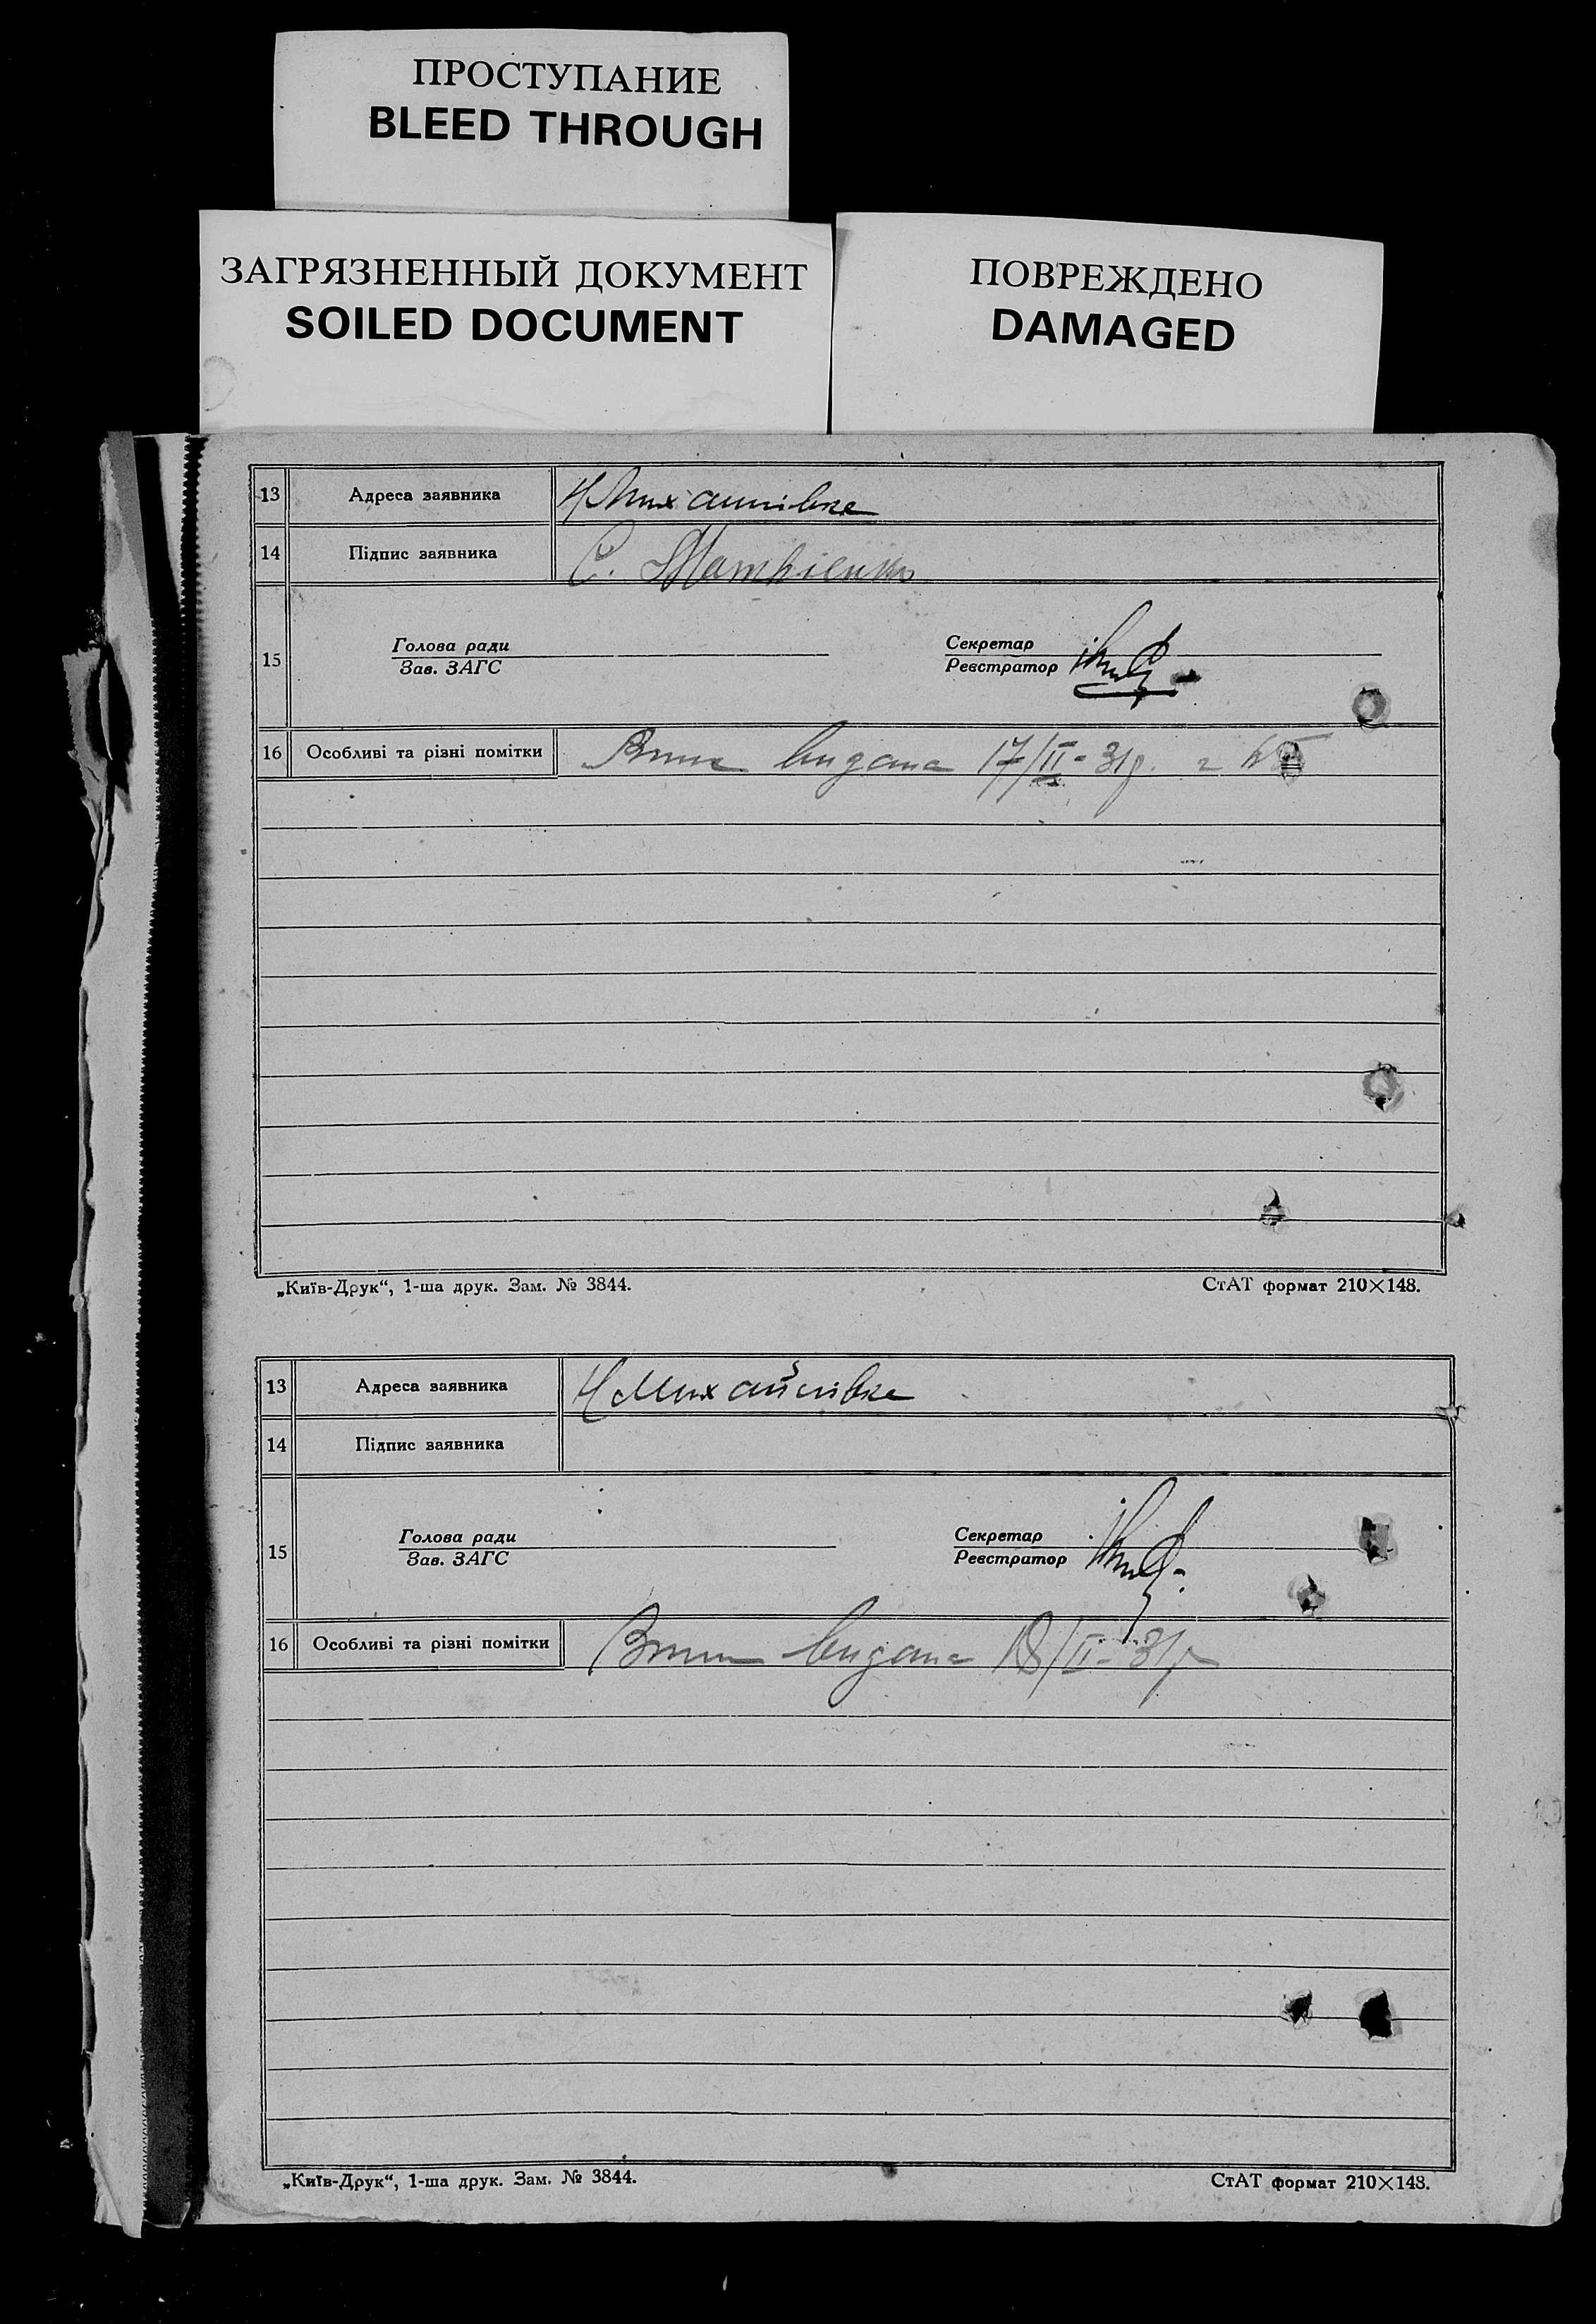 ПРОСТУПАНИЕ
BLEED THROUGH
ЗАГРЯЗНЕННЫЙ ДОКУМЕНТ
SOILED DOCUMENT
ПОВРЕЖДЕНО
DAMAGED
13 Адреса заявника Н Михайлівка
14 Підпис заявника С. Матвіенко
Голова ради Секретар
15
Зав. ЗАГС Реєстратор
16 Особливі та різні помітки видана 17/II-31р.
„Київ-Друк“, 1-ша друк. Зам. № 3844. СтАТ формат 210×148.
13 Адреса заявника Н Михайлівка
14 Підпис заявника
Голова ради Секретар
15
Зав. ЗАГС Реєстратор
16 Особливі та різні помітки видана 18/II-31р
„Київ-Друк“, 1-ша друк. Зам. № 3844. СтАТ формат 210×148.